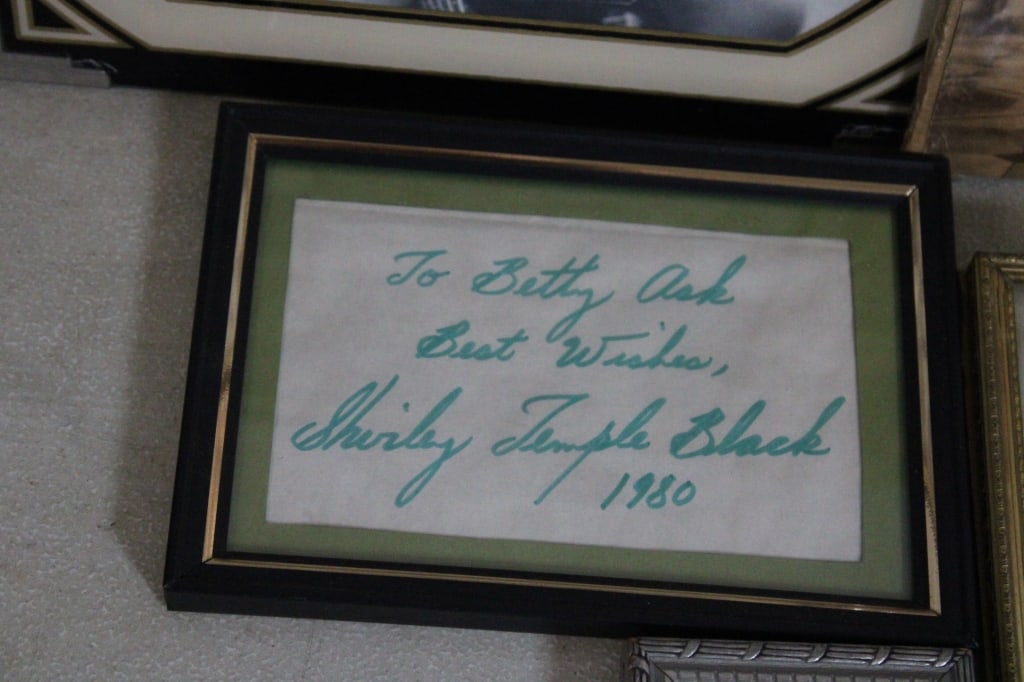 To Betty Ask
Best Wishes,
Shirley Temple Black
1980